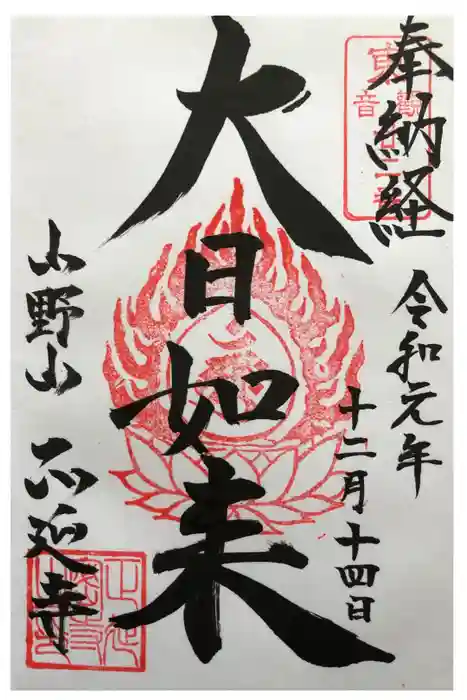 奉納経
觀音
令和元年
十二月十四日
大日如来
小野山 正延寺